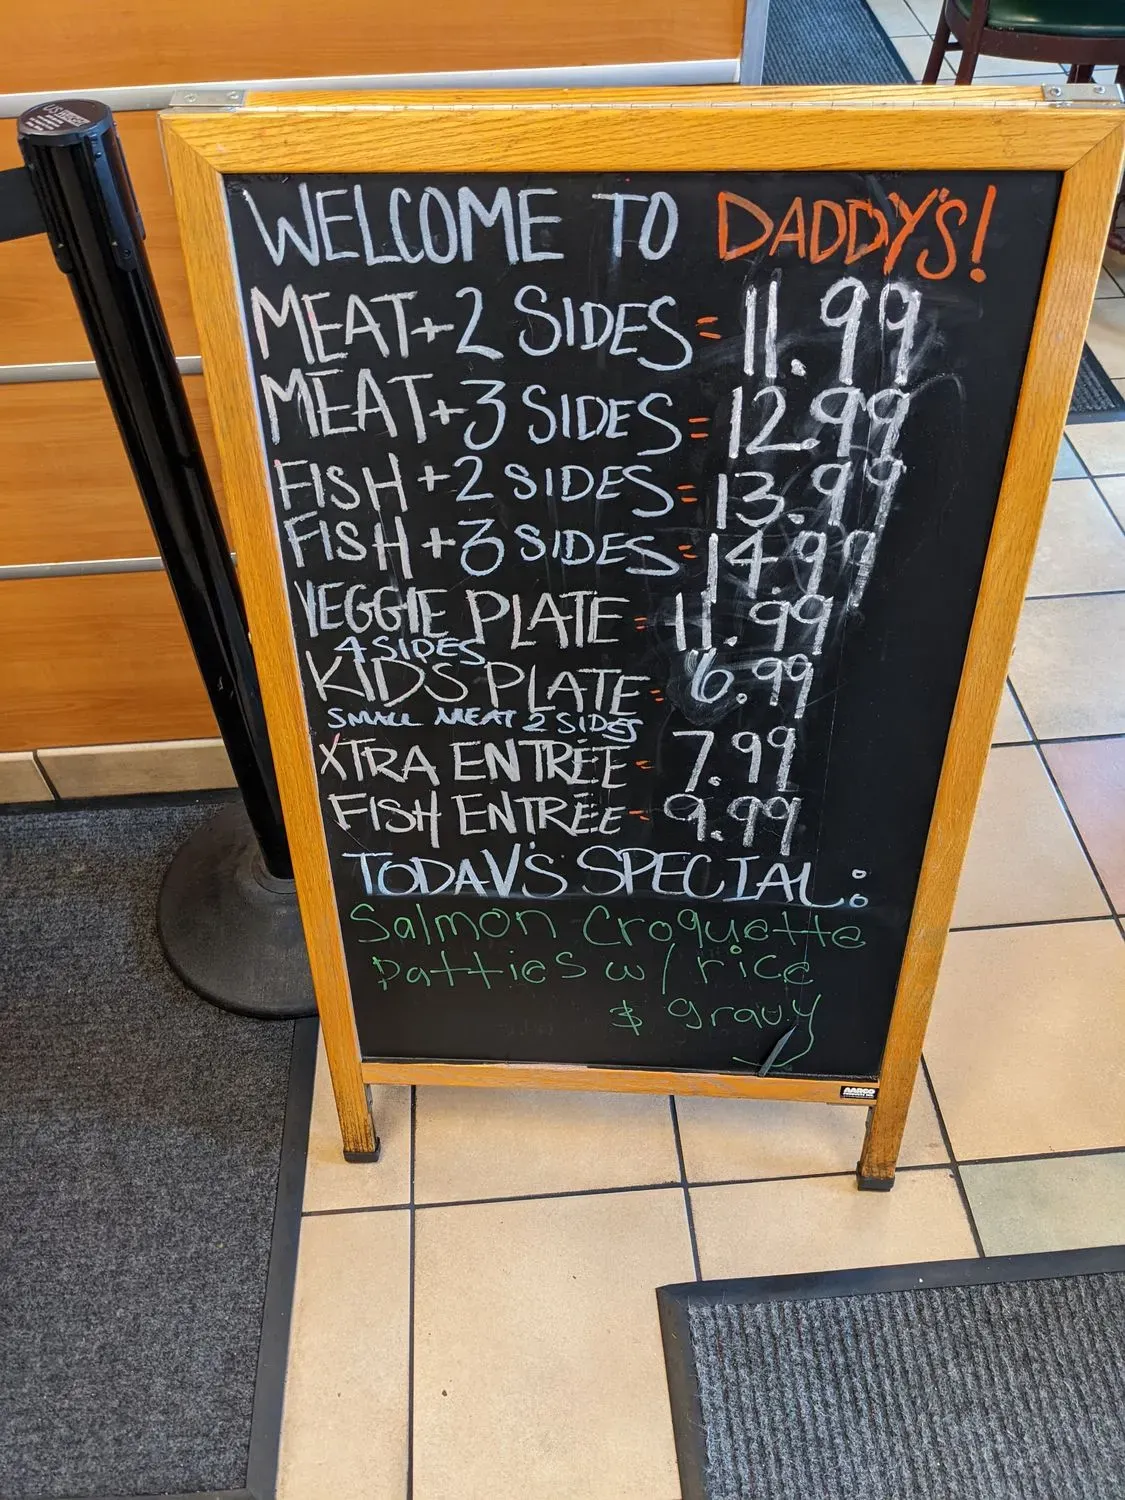 WELCOME TO DADDY'S!
MEAT+2 SIDES = 11.99
MEAT+3 SIDES = 12.99
FISH+2 SIDES = 13.99
FISH+3 SIDES = 14.99
VEGGIE PLATE = 11.99
4 SIDES
KIDS PLATE = 6.99
SMALL MEAT 2 SIDES
XTRA ENTRÉE - 7.99
FISH ENTRÉE - 9.99
TODAY'S SPECIAL:
Salmon Croquette
patties w/ rice
$ gravy
AARCO